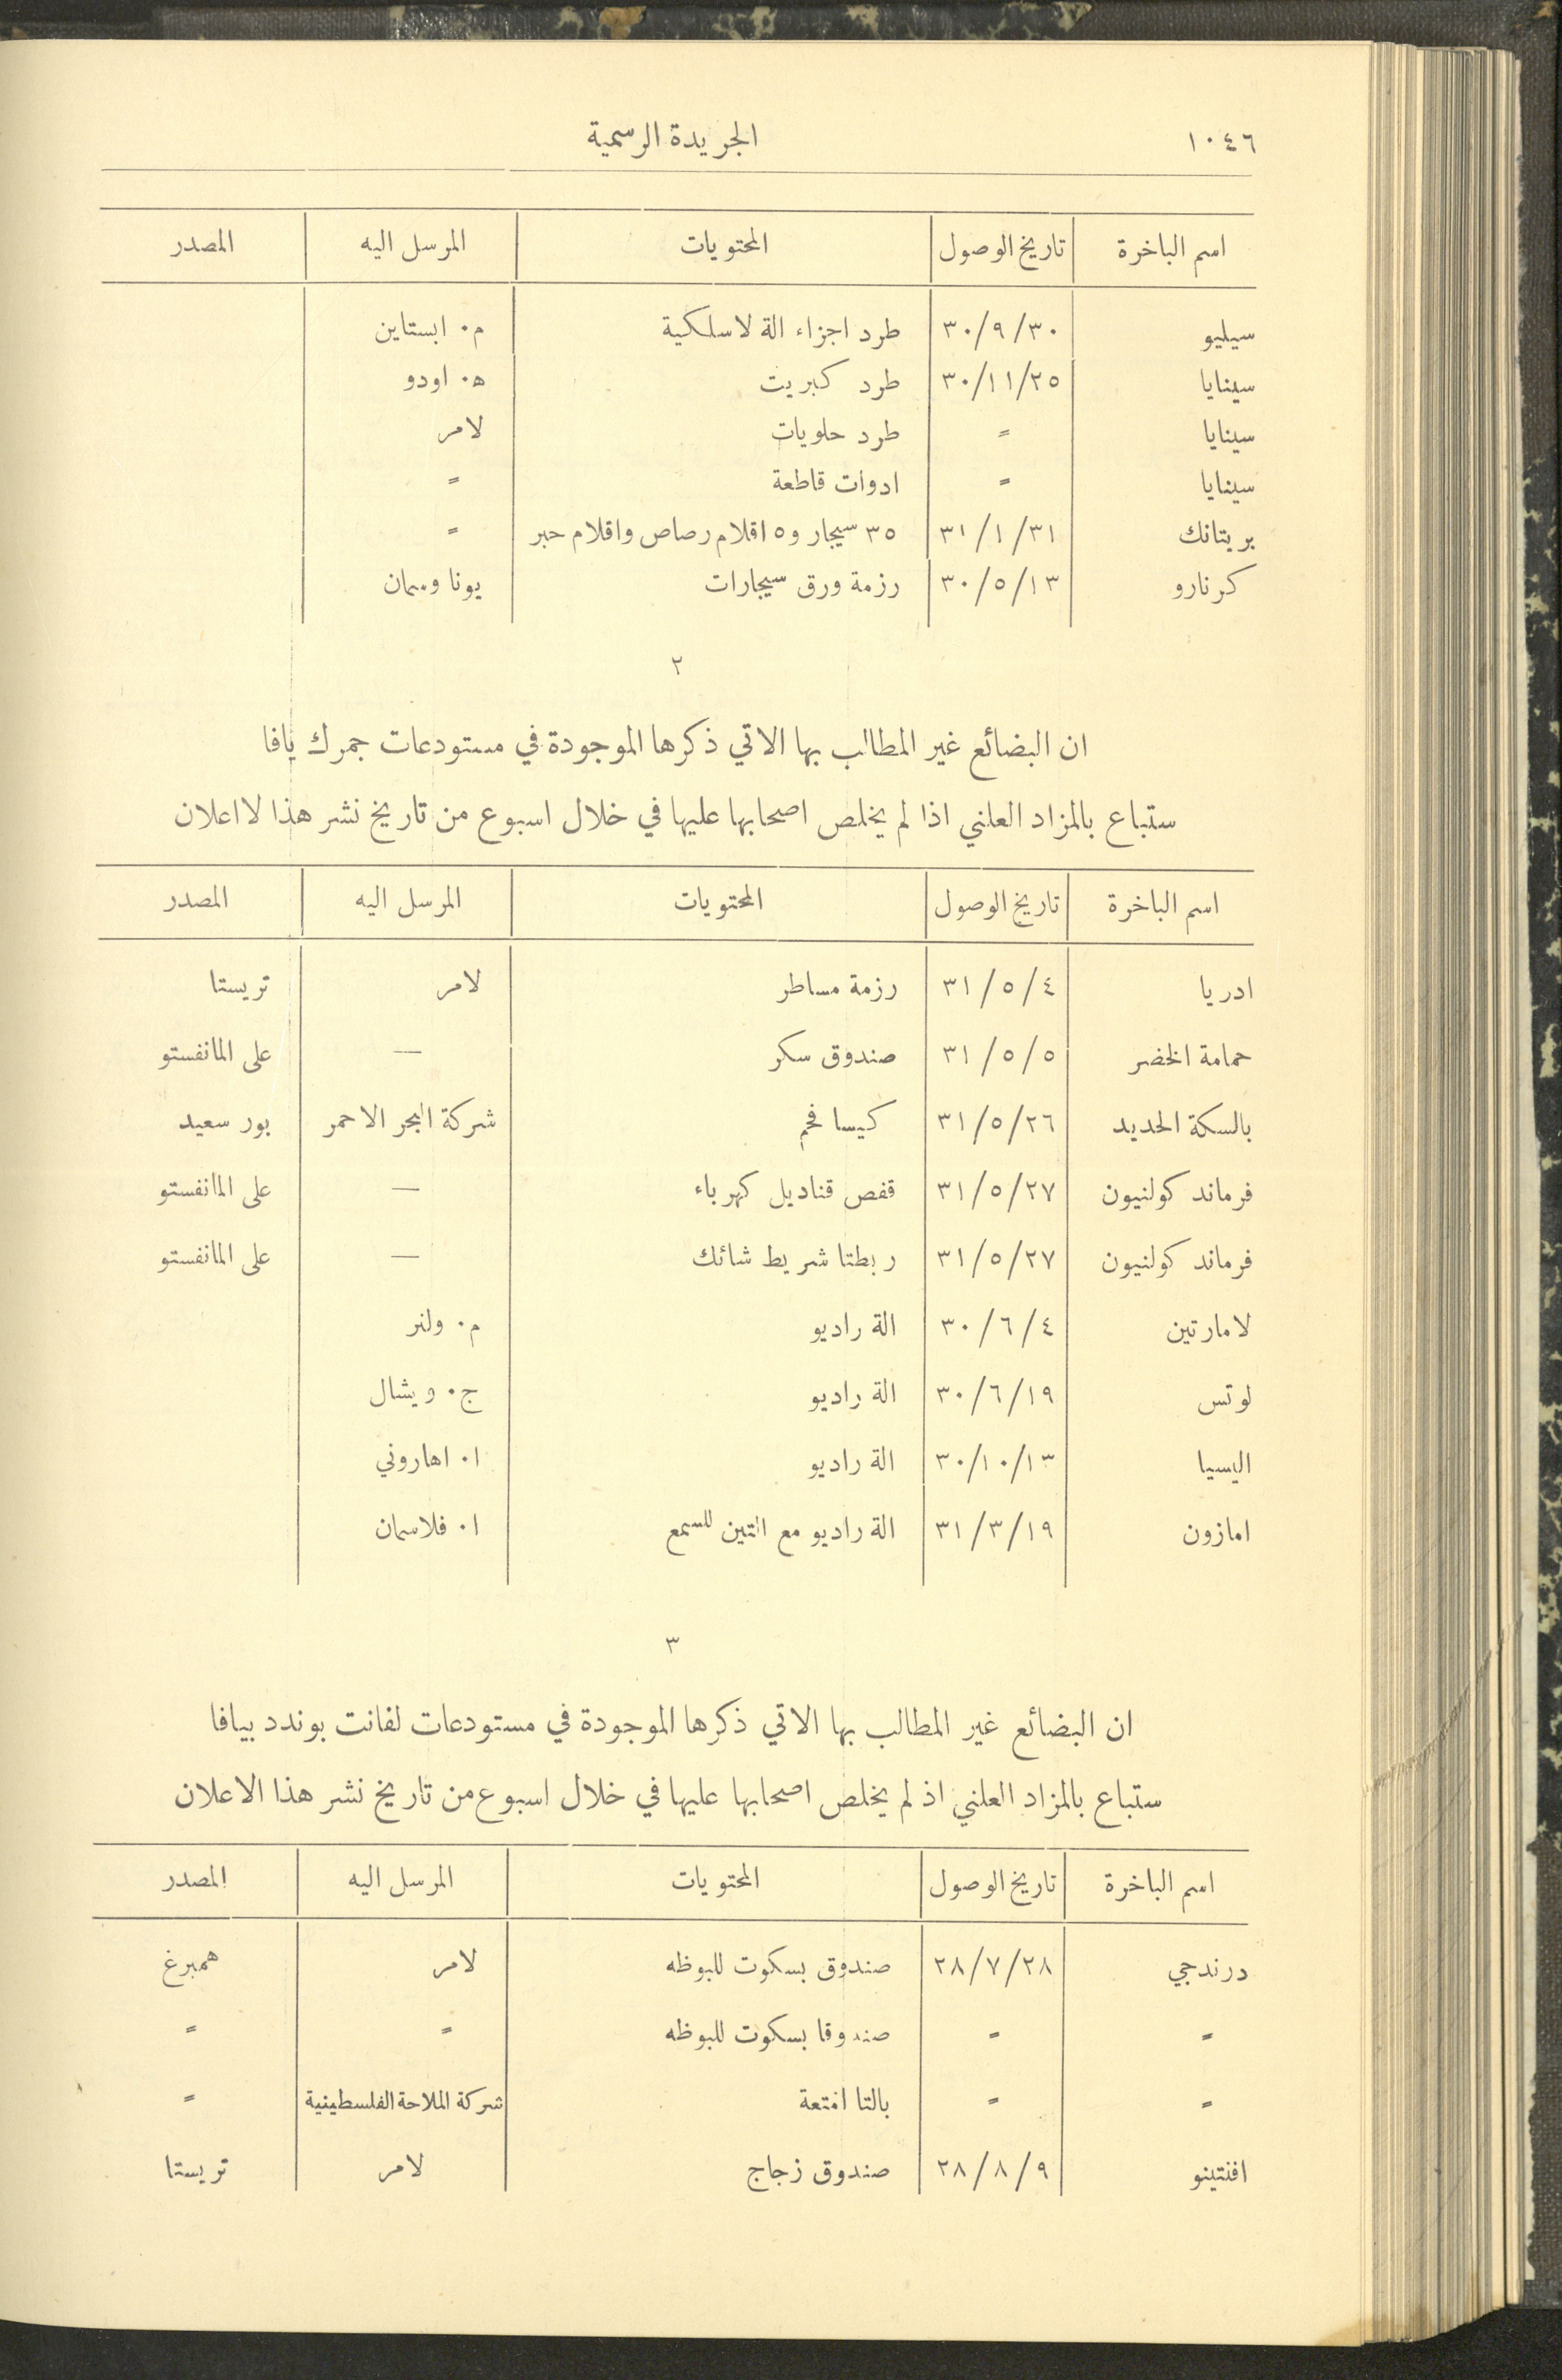 ١٠٤٦ الجريدة الرسمية
اسم الباخرة تاريخ الوصول المحتويات المرسل اليه المصدر
سيليو ٣٠/٩/٣٠ طرد اجزاء الة لاسلكية م٠ ابستاين
سينايا ٣٠/١١/٢٥ طرد كبريت ه٠ اودو
سينايا = طرد حلويات لامر
سينايا = ادوات قاطعة =
بريتانك ٣١/١/٣١ ٣٥ سيجار و٥ اقلام رصاص واقلام حبر =
كرنارو ٣٠/٥/١٣ رزمة ورق سيجارات يونا
٢
ان البضائع غير المطالب بها الاتي ذكرها الموجودة في مستودعات جمرك يافا
ستباع بالمزاد العلني اذا لم يخلص اصحابها عليها في خلال اسبوع من تاريخ نشر هذا لااعلان
اسم الباخرة تاريخ الوصول المحتويات المرسل اليه المصدر
ادريا ٣١/٥/٤ رزمة مساطر لامر تريستا
حمامة الخضر ٣١/٥/٥ صندوق سكر — على المانفستو
بالسكة الحديد ٣١/٥/٢٦ كيسا فحم شركة البحر الاحمر بور سعيد
فرماند كولنيون ٣١/٥/٢٧ قفص قناديل كهرباء — على المانفستو
فرماند كولنيون ٣١/٥/٢٧ ربطتا شريط شائك — على المانفستو
لامارتين ٣٠/٦/٤ الة راديو م٠ ولنر
لوتس ٣٠/٦/١٩ الة راديو ج٠ ويشال
اليسيا ٣٠/١٠/١٣ الة راديو ا٠ اهاروني
امازون ٣١/٣/١٩ الة راديو مع التين للسمع ا٠ فلاسمان
٣
ان البضائع غير المطالب بها الاتي ذكرها الموجودة في مستودعات لفانت بوندد بيافا
ستباع بالمزاد العلني اذ لم يخلص اصحابها عليها في خلال اسبوع من تاريخ نشر هذا الاعلان
اسم الباخرة تاريخ الوصول المحتويات المرسل اليه المصدر
درندجي ٢٨/٧/٢٨ صندوق بسكوت للبوظه لامر همبرغ
= = صندوقا بسكوت للبوظه = =
= = بالتا امتعة شركة الملاحة الفلسطينية =
افنتينو ٢٨/٨/٩ صندوق زجاج لامر تريستا